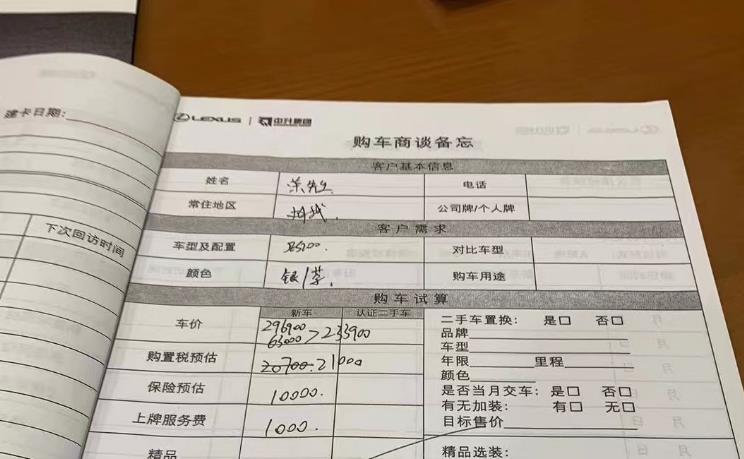 建卡日期:
下次回访时间
LEXUS 中升集团
购车商谈备忘
客户基本信息
姓名 电话
常住地区 公司牌/个人牌
客户需求
车型及配置 对比车型
颜色 银/ 购车用途
购车试算
新车 认证二手车
车价 296900 63000 > 233900
购置税预估 20700-21000
保险预估 10000.
上牌服务费 1000.
精品
二手车置换: 是□ 否□
品牌
车型
年限 里程
颜色
是否当月交车: 是□ 否□
有无加装: 有□ 无□
目标售价
精品选装: